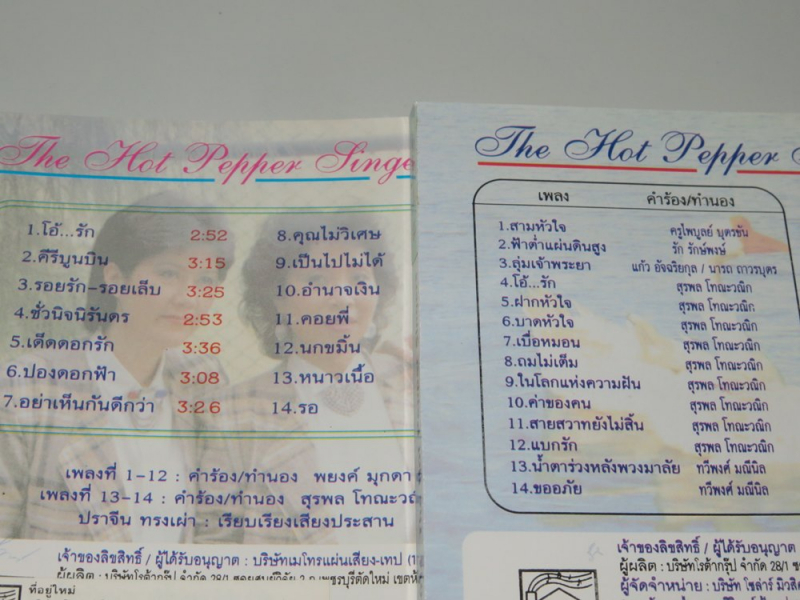 The Hot Pepper Singe
1.โอ้...รัก 2:52
2.คีรีบูนบิน 3:15
3.รอยรัก-รอยเล็บ 3:25
4.ชั่วนิจนิรันดร 2:53
5.เด็ดดอกรัก 3:36
6.ปองดอกฟ้า 3:08
7.อย่าเห็นกันดีกว่า 3:26
8.คุณไม่วิเศษ
9.เป็นไปไม่ได้
10.อำนาจเงิน
11.คอยพี่
12.นกขมิ้น
13.หนาวเนื้อ
14.รอ
เพลงที่ 1-12 : คำร้อง/ทำนอง พยงค์ มุกดา
เพลงที่ 13-14 : คำร้อง/ทำนอง สุรพล โทณะวณิ
ปราจีน ทรงเผ่า : เรียบเรียงเสียงประสาน
เจ้าของลิขสิทธิ์ / ผู้ได้รับอนุญาต : บริษัทเมโทรแผ่นเสียง-เทป
ผู้ผลิต : บริษัทโรต้ากรุ๊ป จำกัด 28/1 ซอยสมประสงค์ 2 ถ.เพชรบุรีตัดใหม่
ที่อยู่ใหม่
The Hot Pepper
เพลง คำร้อง/ทำนอง
1.สามหัวใจ ครูไพบูลย์ บุตรขัน
2.ฟ้าต่ำแผ่นดินสูง รัก รักษ์พงษ์
3.ลุ่มเจ้าพระยา แก้ว อัจฉริยกุล / นารถ ถาวรบุตร
4.โอ้...รัก สุรพล โทณะวณิก
5.ฝากหัวใจ สุรพล โทณะวณิก
6.บาดหัวใจ สุรพล โทณะวณิก
7.เบื่อหมอน สุรพล โทณะวณิก
8.ถมไม่เต็ม สุรพล โทณะวณิก
9.ในโลกแห่งความฝัน สุรพล โทณะวณิก
10.ค่าของคน สุรพล โทณะวณิก
11.สายสวาทยังไม่สิ้น สุรพล โทณะวณิก
12.แบกรัก สุรพล โทณะวณิก
13.น้ำตาร่วงหลังพวงมาลัย ทวีพงศ์ มณีนิล
14.ขออภัย ทวีพงศ์ มณีนิล
เจ้าของลิขสิทธิ์ / ผู้ได้รับอนุญาต :
ผู้ผลิต : บริษัทโรต้ากรุ๊ป จำกัด 28/1
ผู้จัดจำหน่าย : บริษัท โซล่าร์ มิวสิค